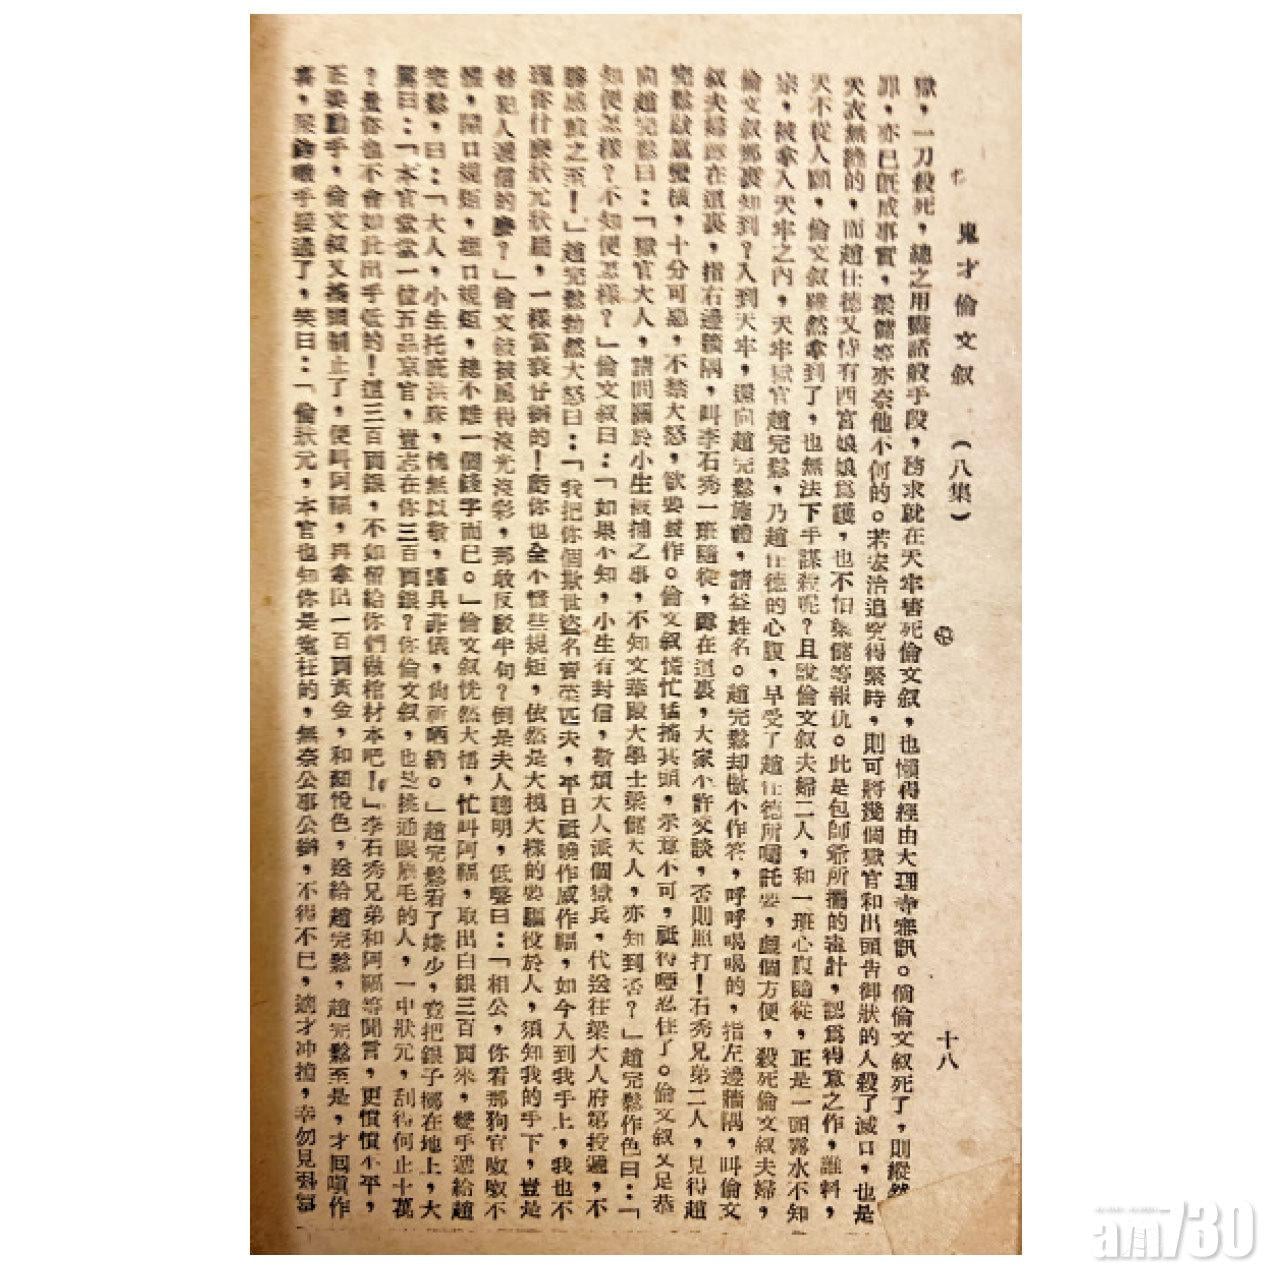 鬼才倫文叙 (八集) 十八
獄，一刀殺死，總之用盡諸般手段，務求就在天牢害死倫文叙，也懶得經由大理寺審訊。倘倫文叙死了，則縱然
罪，亦已既成事實，梁儲等亦奈他不何的。若宏治追究得緊時，則可將幾個獄官和出頭告御狀的人殺了滅口，也是
天衣無縫的，而趙仕德又恃有西宮娘娘爲護，也不怕梁儲等報仇。此是包師爺所擺的毒計，認爲得意之作，誰料，
天不從人願，倫文叙雖然拿到了，也無法下手謀殺呢？且說倫文叙夫婦二人，和一班心腹隨從，正是一頭霧水不知
宗，被拿入天牢之內，天牢獄官趙完鬆，乃趙仕德的心腹，早受了趙仕德所囑託要，處個方便，殺死倫文叙夫婦，
倫文叙那裏知到？入到天牢，還向趙完鬆施禮，請益姓名。趙完鬆却傲不作答，呼呼喝喝的，指左邊牆隅，叫倫文
叙夫婦蹲在這裏，指右邊牆隅，叫李石秀一班隨從，蹲在這裏，大家不許交談，否則照打！石秀兄弟二人，見得趙
完鬆啟氣蠻橫，十分可惡，不禁大怒，欲要發作。倫文叙慌忙猛搖其頭，示意不可，祗得啞忍住了。倫文叙又足恭
向趙完鬆曰：「獄官大人，請問關於小生被捕之事，不知文華殿大學士梁儲大人，亦知到否？」趙完鬆作色曰：「
知便怎樣？不知便怎樣？」倫文叙曰：「如果不知，小生有封信，敬煩大人派個獄兵，代送往梁大人府第投遞，不
勝感激之至！」趙完鬆勃然大怒曰：「我把你個欺世盜名賣菜匹夫，平日祗曉作威作福，如今入到我手上，我也不
理你什麽狀元狀龍，一樣當衰仔辦的！虧你也全不懂些規矩，依然是大模大樣的要驅役於人，須知我的手下，豈是
替犯人遞信的麽？」倫文叙被罵得沒光沒彩，那敢反駁半句？倒是夫人聰明，低聲曰：「相公，你看那狗官呶呶不
體，開口規矩，埋口規矩，總不離一個錢字而已。」倫文叙恍然大悟，忙叫阿福，取出白銀三百両來，雙手遞給趙
完鬆，曰：「大人，小生托庇洪庥，愧無以敬，謹具菲儀，尚祈哂納。」趙完鬆看了嫌少，竟把銀子擲在地上，大
罵曰：「本官堂堂一位五品京官，豈志在你三百両銀？你倫文叙，也是挑通眼眉毛的人，一中狀元，刮得何止十萬
？量你也不會如此出手低的！這三百両銀，不如留給你們做棺材本吧！」李石秀兄弟和阿福等聞言，更憤憤不平，
正要動手，倫文叙又搖頭制止了，便叫阿福，再拿出一百両黃金，和顏悅色，送給趙完鬆，趙完鬆至是，才回嗔作
喜，陰陰嘴手接過了，笑曰：「倫狀元，本官也知你是寃枉的，無奈公事公辦，不得不已，適才冲撞，幸勿見怪寫
am730